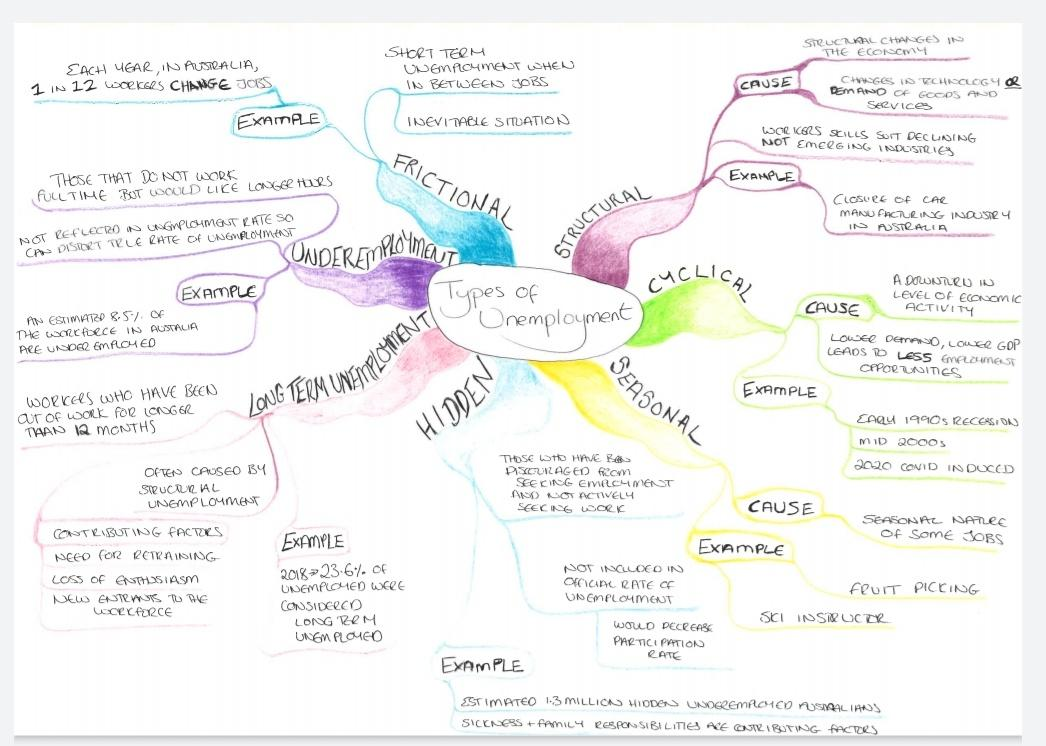 Types of
Unemployment
FRICTIONAL
SHORT TERM
UNEMPLOYMENT WHEN
IN BETWEEN JOBS
INEVITABLE SITUATION
EXAMPLE
EACH YEAR, IN AUSTRALIA,
1 IN 12 WORKERS CHANGE JOBS
STRUCTURAL
CAUSE
STRUCTURAL CHANGES IN
THE ECONOMY
CHANGES IN TECHNOLOGY OR
DEMAND OF GOODS AND
SERVICES
WORKERS SKILLS SUIT DECLINING
NOT EMERGING INDUSTRIES
EXAMPLE
CLOSURE OF CAR
MANUFACTURING INDUSTRY
IN AUSTRALIA
CYCLICAL
CAUSE
A DOWNTURN IN
LEVEL OF ECONOMIC
ACTIVITY
LOWER DEMAND, LOWER GDP
LEADS TO LESS EMPLOYMENT
OPPORTUNITIES
EXAMPLE
EARLY 1990s RECESSION
MID 2000s
2020 COVID INDUCED
SEASONAL
CAUSE
SEASONAL NATURE
OF SOME JOBS
EXAMPLE
FRUIT PICKING
SKI INSTRUCTOR
HIDDEN
THOSE WHO HAVE BEEN
DISCOURAGED FROM
SEEKING EMPLOYMENT
AND NOT ACTIVELY
SEEKING WORK
NOT INCLUDED IN
OFFICIAL RATE OF
UNEMPLOYMENT
WOULD DECREASE
PARTICIPATION
RATE
EXAMPLE
ESTIMATED 1.3 MILLION HIDDEN UNDEREMPLOYED AUSTRALIANS
SICKNESS + FAMILY RESPONSIBILITIES ARE CONTRIBUTING FACTORS
LONG TERM UNEMPLOYMENT
WORKERS WHO HAVE BEEN
OUT OF WORK FOR LONGER
THAN 12 MONTHS
OFTEN CAUSED BY
STRUCTURAL
UNEMPLOYMENT
CONTRIBUTING FACTORS
NEED FOR RETRAINING
LOSS OF ENTHUSIASM
NEW ENTRANTS TO THE
WORKFORCE
EXAMPLE
2018→23.6% OF
UNEMPLOYED WERE
CONSIDERED
LONG TERM
UNEMPLOYED
UNDEREMPLOYMENT
THOSE THAT DO NOT WORK
FULL TIME BUT WOULD LIKE LONGER HOURS
NOT REFLECTED IN UNEMPLOYMENT RATE SO
CAN DISTORT TRUE RATE OF UNEMPLOYMENT
EXAMPLE
AN ESTIMATED 8.5% OF
THE WORKFORCE IN AUSTALIA
ARE UNDEREMPLOYED